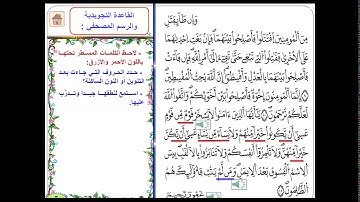 القاعدة التجويدية
والرسم المصحفي :
- لاحظ الكلمات المسطر تحتها
باللون الأحمر والأزرق:
- حدد الحروف التي جاءت بعد
التنوين أو النون الساكنة؟
- استمع للفظها جيدا وتدرب
عليها.
وَإِن طَائِفَتَانِ
مِنَ الْمُؤْمِنِينَ اقْتَتَلُوا فَأَصْلِحُوا بَيْنَهُمَا فَإِن بَغَتْ إِحْدَاهُمَا
عَلَى الْأُخْرَىٰ فَقَاتِلُوا الَّتِي تَبْغِي حَتَّىٰ تَفِيءَ إِلَىٰ أَمْرِ اللَّهِ فَإِن فَاءَتْ
فَأَصْلِحُوا بَيْنَهُمَا بِالْعَدْلِ وَأَقْسِطُوا إِنَّ اللَّهَ يُحِبُّ الْمُقْسِطِينَ
إِنَّمَا الْمُؤْمِنُونَ إِخْوَةٌ فَأَصْلِحُوا بَيْنَ أَخَوَيْكُمْ وَاتَّقُوا اللَّهَ
لَعَلَّكُمْ تُرْحَمُونَ يَا أَيُّهَا الَّذِينَ آمَنُوا لَا يَسْخَرْ قَوْمٌ مِّن قَوْمٍ
عَسَىٰ أَن يَكُونُوا خَيْرًا مِّنْهُمْ وَلَا نِسَاءٌ مِّن نِّسَاءٍ عَسَىٰ أَن يَكُنَّ
خَيْرًا مِّنْهُنَّ وَلَا تَلْمِزُوا أَنفُسَكُمْ وَلَا تَنَابَزُوا بِالْأَلْقَابِ بِئْسَ
الِاسْمُ الْفُسُوقُ بَعْدَ الْإِيمَانِ وَمَن لَّمْ يَتُبْ فَأُولَٰئِكَ هُمُ
الظَّالِمُونَ